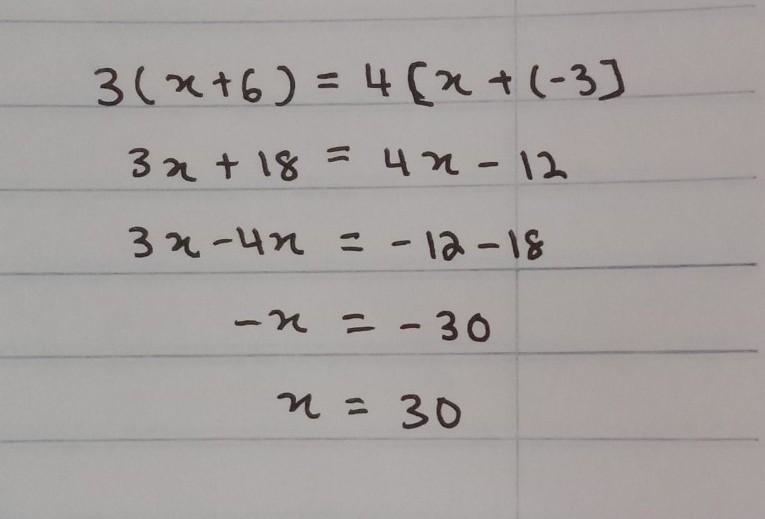 3(x+6) = 4[x+(-3]
3x+18 = 4x-12
3x-4x = -12-18
-x = -30
x = 30